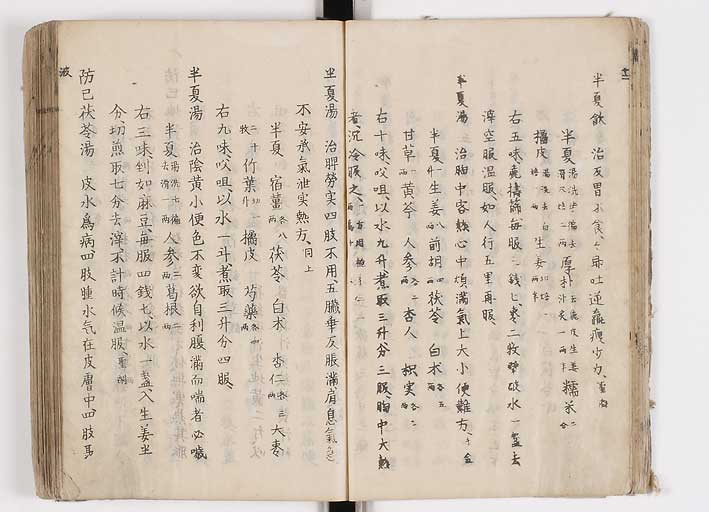 半夏飲 治反胃不食食即吐逆羸瘦少力
半夏 湯洗 厚朴 去麁皮生姜汁炙 一两 糯米 二合
橘皮 湯浸去白焙 一两 生姜
右五味麁擣篩毎服三錢匕枣二枚擘破水一盞去
滓空服温服如人行五里再服
半夏湯 治胸中客熱心中煩満氣上大小便難方 千金
半夏 一升 生姜 八两 前胡 四两 茯苓 白术 各五两
甘草 一两 黄芩 人参 各二两 杏人 枳実 各三两
右十味㕮咀以水九升煮取三升分三服胸中大熱
者沉冷服之
半夏湯 治脾劳実四肢不用五臓乖反脹満肩息氣急
不安承氣泄実熱方 同上
半夏 宿薑 各八两 茯苓 白术 杏仁 各三两 大枣
二十枚 竹葉 切一升 橘皮 芍薬 各四两
右九味㕮咀以水一斗煮取三升分四服
半夏湯 治陰黄小便色不変欲自利腹満而喘者必噦
半夏 湯洗七徧去滑 一两 人参 二两 葛根 二两
右三味剉如麻豆毎服四錢匕以水一盞入生姜半
分切煎取七分去滓不計時候温服 聖剤
防已茯苓湯 皮水為病四肢腫水气在皮膚中四肢聶
波